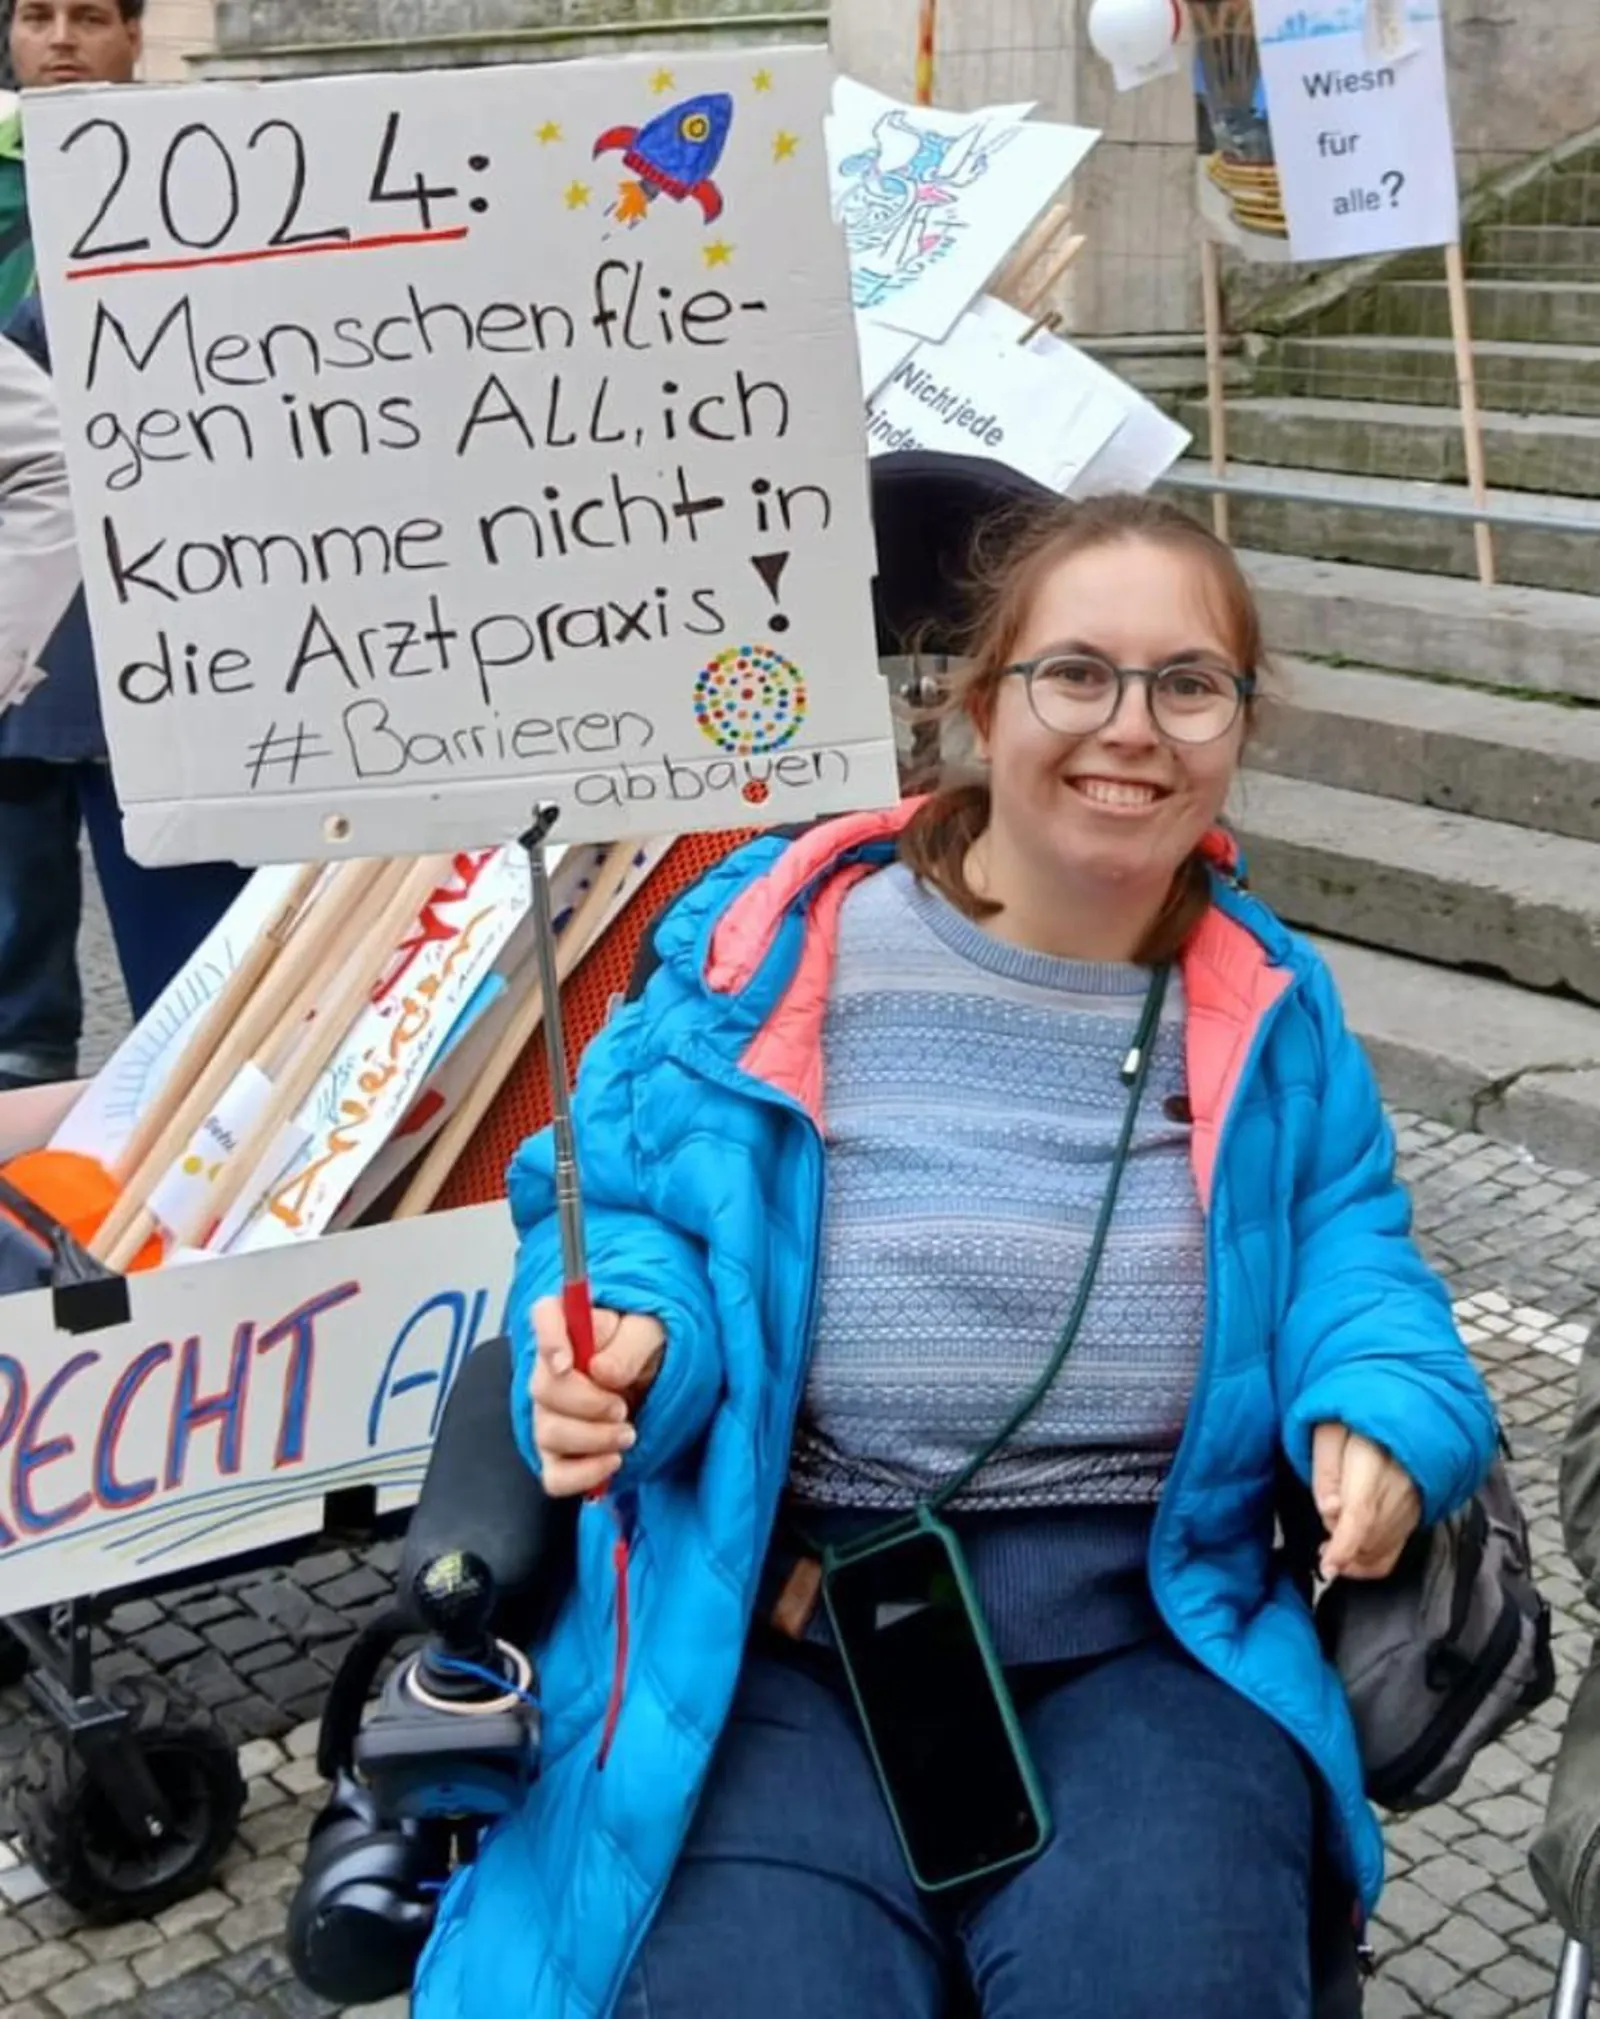 2024:
Menschen flie-
gen ins ALL, ich
komme nicht in
die Arztpraxis!
#Barrieren
abbauen
Wiesn
für
alle?
Nicht jede
RECHT